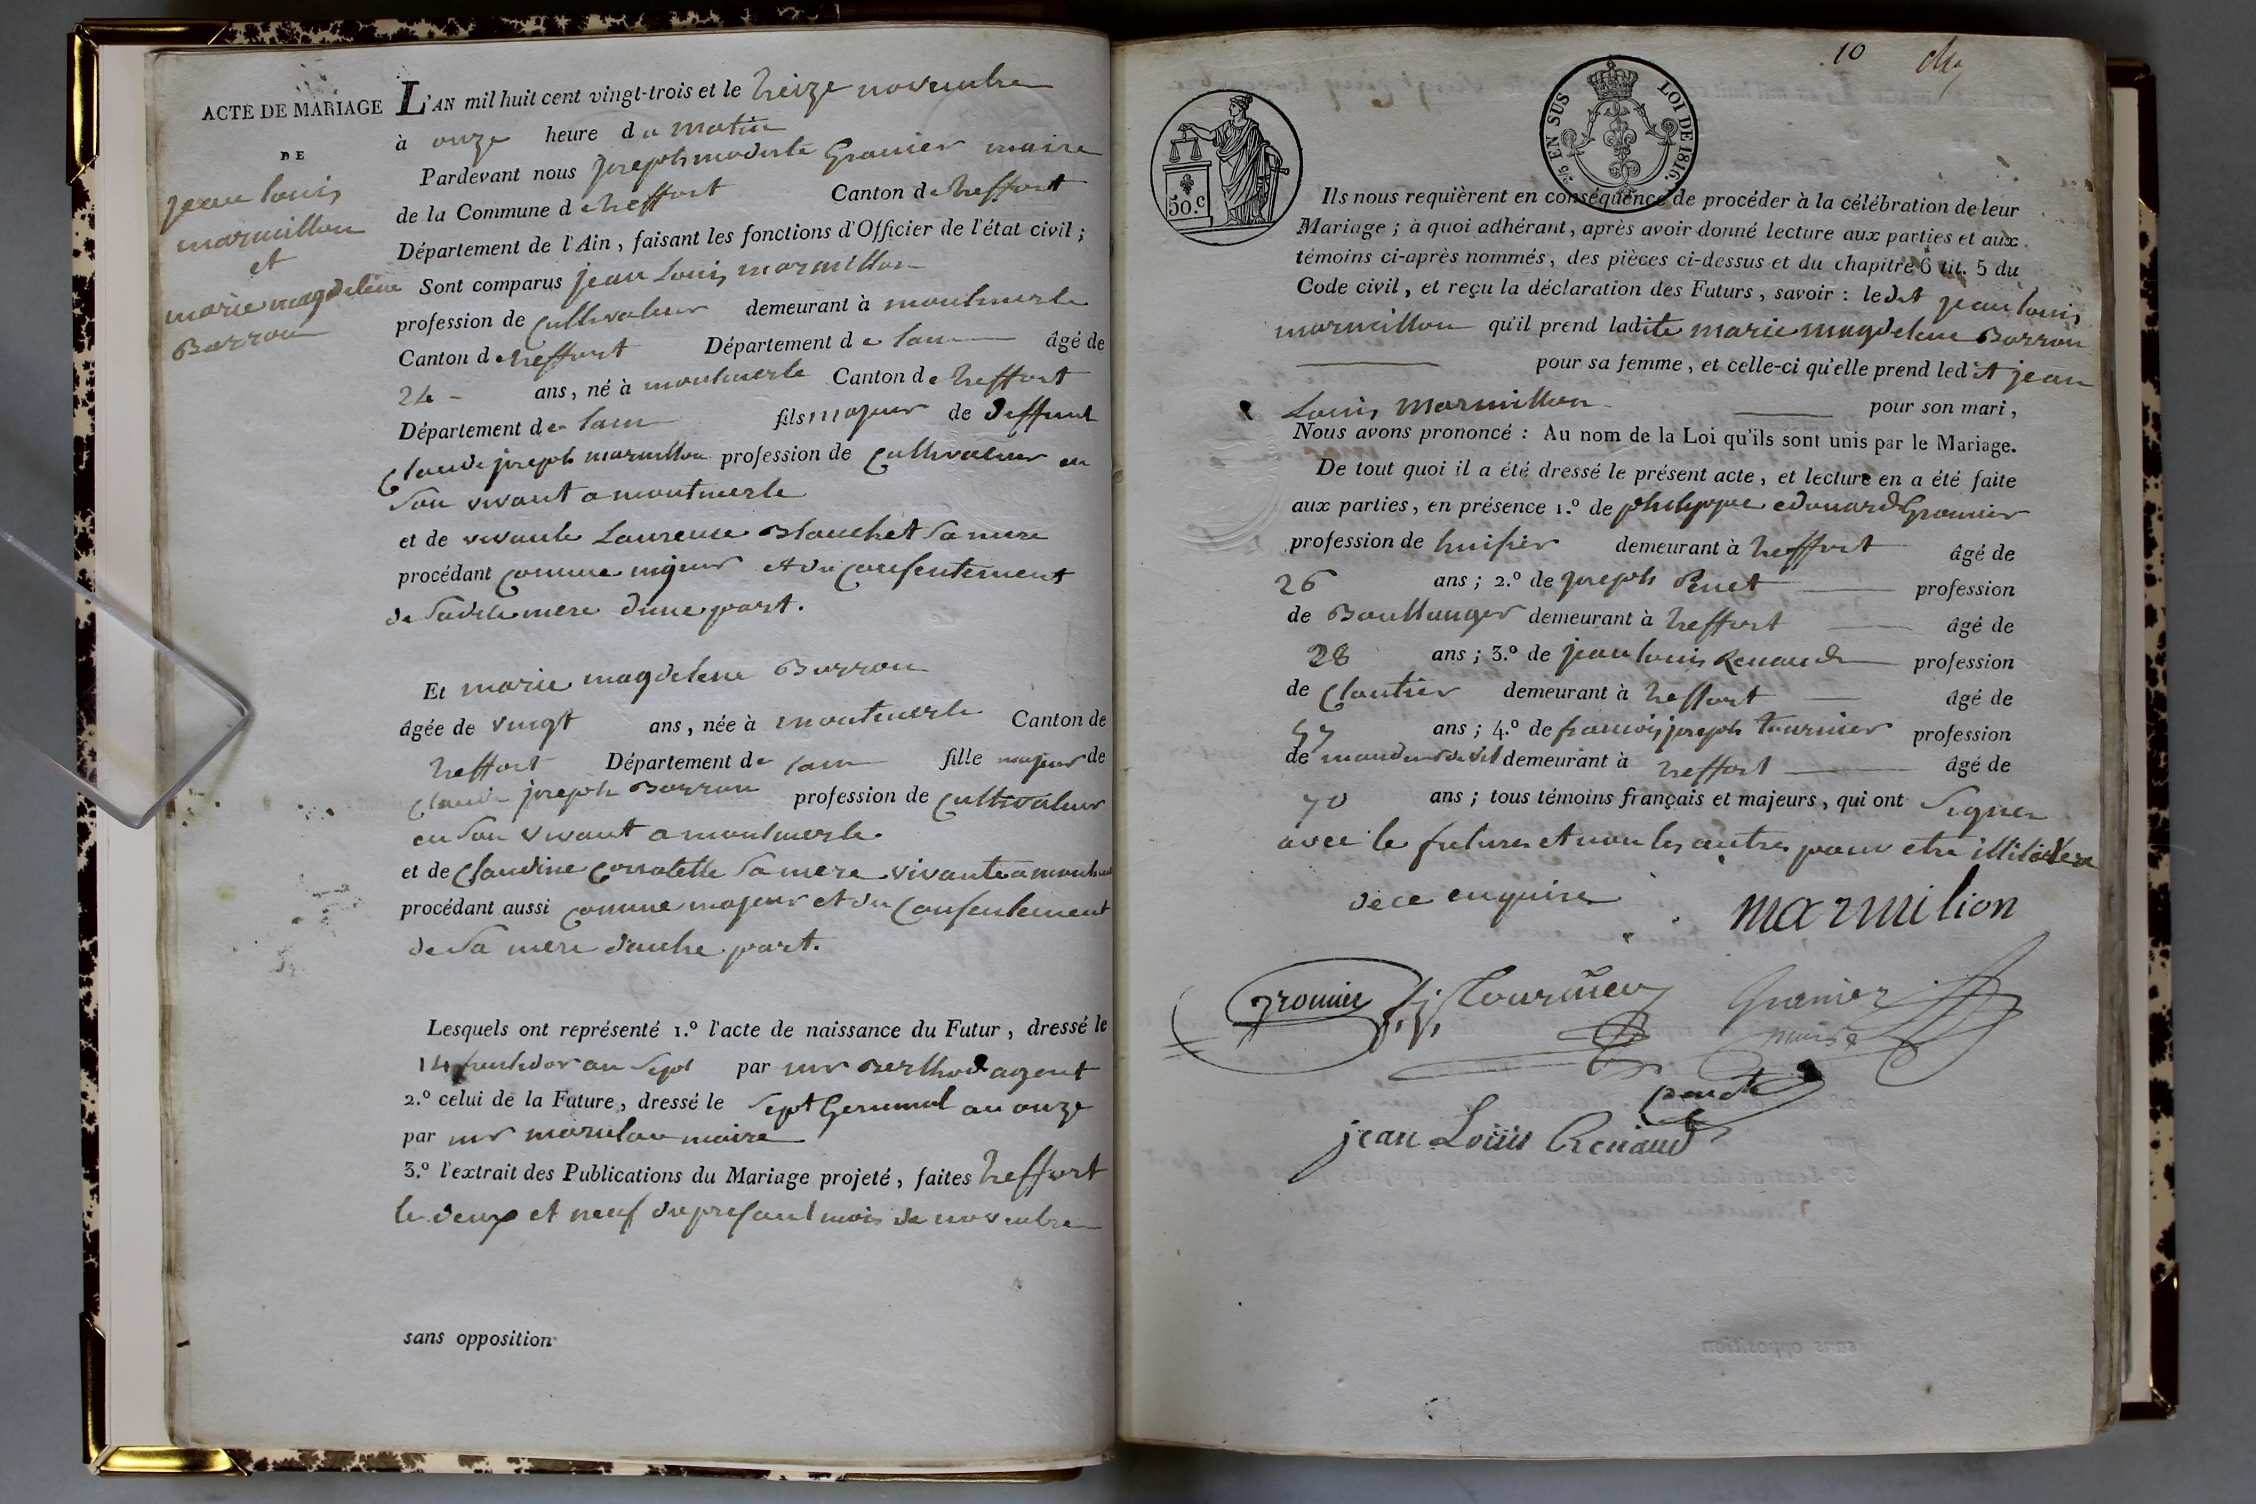 ACTE DE MARIAGE
DE
jean louis
marmillon
et
marie magdelène
Barron
L'AN mil huit cent vingt-trois et le treize novembre
à onze heure du matin
Pardevant nous joseph modeste Granier maire
de la Commune de treffort Canton de treffort
Département de l'Ain, faisant les fonctions d'Officier de l'état civil;
Sont comparus jean Louis marmillon
profession de Cultivateur demeurant à montmerle
Canton de treffort Département de lain âgé de
24 - ans, né à montmerle Canton de treffort
Département de lain fils majeur de deffunt
Claude joseph marmillon profession de Cultivateur en
son vivant a montmerle
et de vivante Laurence Blanchet sa mere
procédant comme majeur et du consentement
de sadite mere dune part.
Et marie magdelene Barron
âgée de vingt ans, née à montmerle Canton de
treffort Département de lain fille majeur de
Claude joseph Barron profession de Cultivateur
en son vivant a montmerle
et de Claudine sa mere vivante a
procédant aussi comme majeur et du consentement
de sa mere dautre part.
Lesquels ont représenté 1.º l'acte de naissance du Futur, dressé le
14 an sept par mr Berthod agent
2.º celui de la Future, dressé le sept Germinal an onze
par mr maire
3.º l'extrait des Publications du Mariage projeté, faites treffort
le deux et neuf du present mois de novembre
sans opposition
10
30.c
EN SUS
LOI DE 1816.
Ils nous requièrent en conséquence de procéder à la célébration de leur
Mariage; à quoi adhérant, après avoir donné lecture aux parties et aux
témoins ci-après nommés, des pièces ci-dessus et du chapitre 6 tit. 5 du
Code civil, et reçu la déclaration des Futurs, savoir: ledit jean louis
marmillon qu'il prend ladite marie magdelene Barron
pour sa femme, et celle-ci qu'elle prend ledit jean
Louis marmillon pour son mari,
Nous avons prononcé: Au nom de la Loi qu'ils sont unis par le Mariage.
De tout quoi il a été dressé le présent acte, et lecture en a été faite
aux parties, en présence 1.º de philippe edouard Gromier
profession de huissier demeurant à treffort âgé de
26 ans; 2.º de joseph profession
de Boullanger demeurant à treffort âgé de
28 ans; 3.º de jean louis Renaud profession
de Cloutier demeurant à treffort âgé de
57 ans; 4.º de francois joseph tournier profession
de demeurant à treffort âgé de
70 ans; tous témoins français et majeurs, qui ont signer
avec le futur et non les autres pour etre illiterer
de ce enquire
marmilion
Gromier f. j. Tournier Granier
maire
jean Louis Renaud